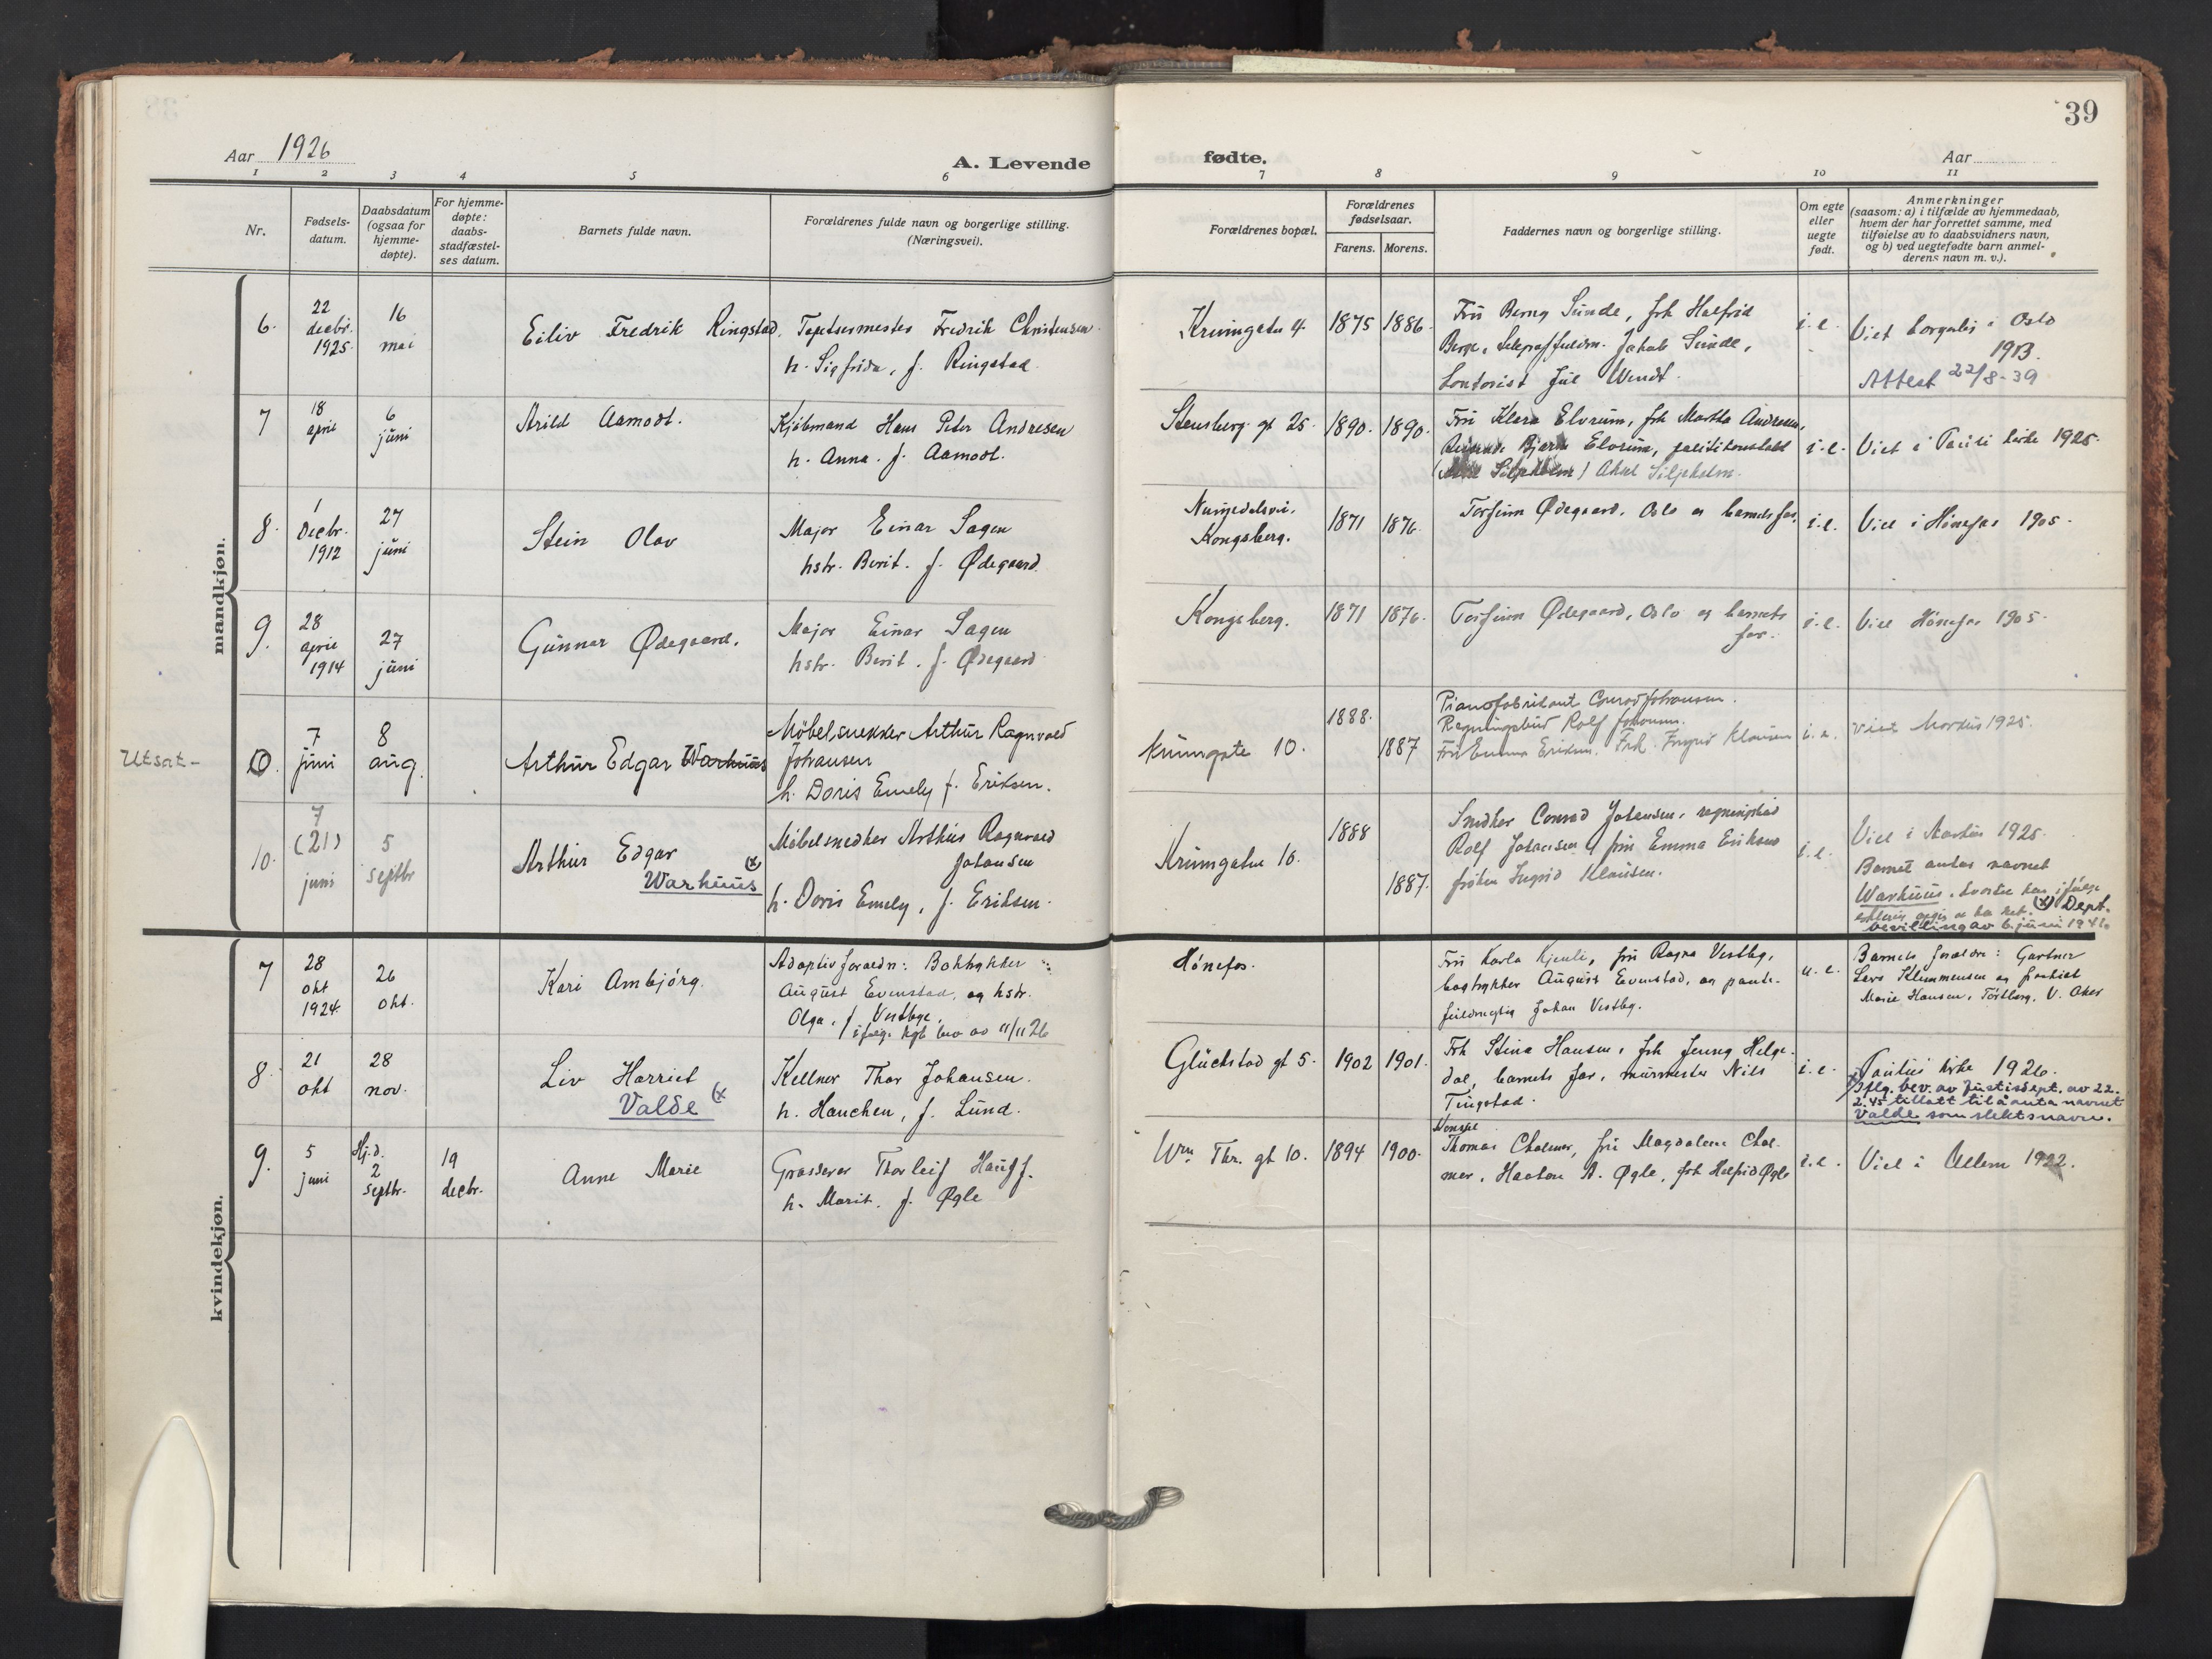 39
Aar 1926
A. Levende
fødte.
Aar
1 2 3 4 5 6 7 8 9 10 11
Nr.
Fødsels-
datum.
Daabsdatum
(ogsaa for
hjemme-
døpte).
For hjemme-
døpte:
daabs-
stadfæstel-
ses datum.
Barnets fulde navn.
Forældrenes fulde navn og borgerlige stilling.
(Næringsvei).
Forældrenes bopæl.
Forældrenes
fødselsaar.
Farens. Morens.
Faddernes navn og borgerlige stilling.
Om egte
eller
uegte
født.
Anmerkninger
(saasom: a) i tilfælde av hjemmedaab,
hvem der har forrettet samme, med
tilføielse av to daabsvidners navn,
og b) ved uegtefødte barn anmel-
derens navn m. v.).
mandkjøn.
6.
22
decbr.
1925.
16
mai
Eiliv Fredrik Ringstad.
Tapetsermester Fredrik Christensen
h. Sigfrida, f. Ringstad.
Krumgaten 4.
1875 1886.
Fru Berny Sunde, frk Halfrid
Berge, Jakob Sunde,
Kontorist Jul Wendt.
i. e.
Viet borgerlig i Oslo
1913.
Attest 22/8-39
7
18
april
6
juni
Arild Aamodt.
Kjøbmand Hans Peter Andresen
h. Anna. f. Aamodt.
Stensberg. gt 25.
1890. 1890.
Fru Klara Elvrum, frk Martha Andresen,
Bjarne Elvrum, politikonstabel
Aksel Siljeholm.
i. e.
Viet i Pauli kirke 1925.
8.
1
Decbr.
1912
27
juni
Stein Olav
Major Einar Sagen
hstr. Berit. f. Ødegaard.
Numedalsvei.
Kongsberg.
1871 1876.
Torfinn Ødegaard, Oslo og barnets far.
i. e.
Viet i Hønefos 1905.
9.
28
april
1914
27
juni
Gunnar Ødegaard.
Major Einar Sagen
hstr. Berit. f. Ødegaard
Kongsberg.
1871 1876.
Torfinn Ødegaard, Oslo og barnets
far.
i. e.
Viet Hønefos 1905.
Utsat-
10.
7
juni
8
aug.
Arthur Edgar Warhuus
Møbelsnekker Arthur Ragnvald
Johansen
h. Doris Emely f. Eriksen.
Krumgate 10.
1888.
1887
Pianofabrikant Conrad Johansen.
Regningsbud Rolf Johansen.
Fru Emma Eriksen. Frk. Ingrid Klausen
i. e.
Viet Markus 1925.
10.
7
(21)
juni
5
septbr
Arthur Edgar (x)
Warhuus
Møbelsnedker Arthur Ragnvald
Johansen
h. Doris Emely, f. Eriksen.
Krumgaten 10.
1888
1887.
Snedker Conrad Johansen, regningsbud
Rolf Johansen, fru Emma Eriksen
frøken Ingrid Klausen.
i. e.
Viet i Markus 1925.
Barnet antar navnet
Warhuus,
(x) Dept.
bevilling av 6. juni 1941.
kvindekjøn.
7
28
okt
1924.
26
okt.
Kari Ambjørg.
Adoptivforældre: Boktrykker
August Evenstad, og hstr.
Olga, f. Vestbye.
ifølg. kgl. brev av 11/11 26
Hønefos.
Fru Karla Kjenli, fru Ragna Vestby,
bogtrykker August Evenstad, og pante-
fuldmegtig Johan Vestby.
u. e.
Barnets foreldre: Gartner
Lars Klemmensen og
Marie Hansen, Torsberg, V. Aker
8.
21
okt
28
nov.
Liv Harriet
Valde (x
Kellner Thor Johansen.
h. Hanchen, f. Lund.
Glückstad gt 5.
1902 1901.
Frk Stina Hansen, frk Jenny Helge-
dal, barnets far, murmester Nils
Tingstad.
i. e.
Paulus kirke 1926.
x) Iflg. bev. av Justisdept. av 22.
2.45 tillatt til å anta navnet
Valde som slektsnavn.
9.
5
juni
Hj.d.
2
septbr.
19
decbr.
Anne Marie
Grosserer Thorleif Hauff.
h. Marit. f. Øgle
Wm Thr. gt 10.
1894 1900.
Konsul
Thomas Cholmer, fru Magdalene Chol-
mer, Haakon A. Øgle, frk Halfrid Øgle
i. e.
Viet i Ullern 1922.